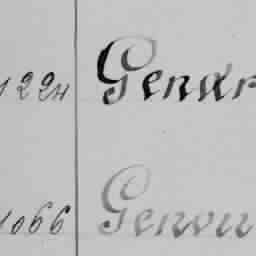 1224 Gendr
1066 Genou